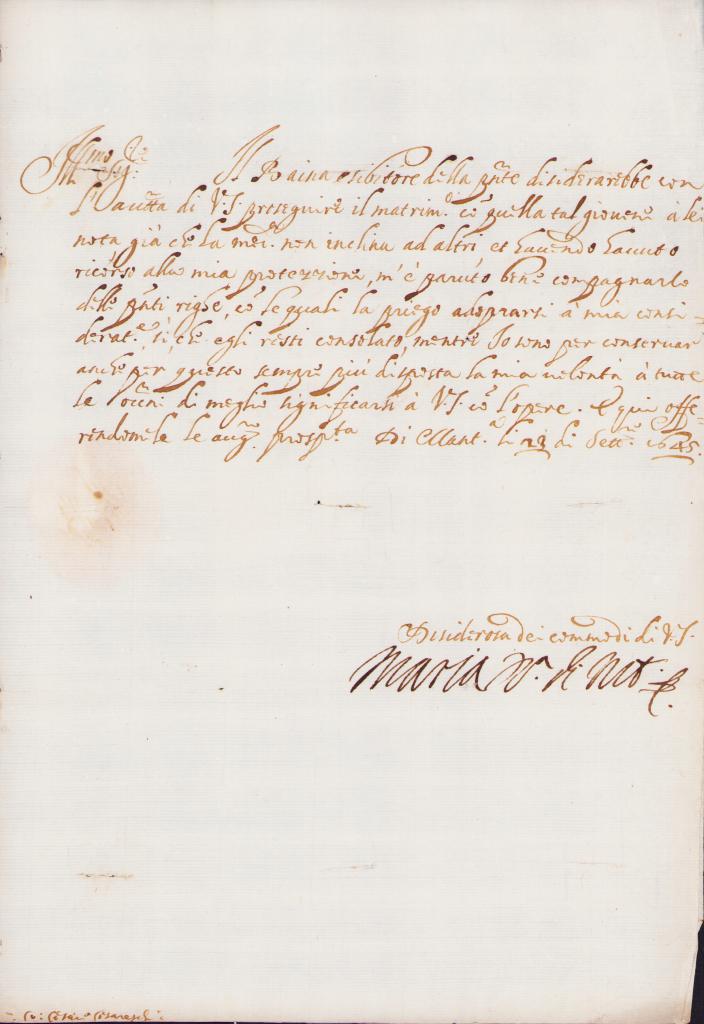 Ill.mo Sig.re Il Baina esibitore della pñte disiderarebbe con
l'auttà di V.S. proseguire il matrim.o cõ quella tal giovene à lei
nota già che la med. non inclina ad altri et havendo havuto
ricorso alla mia protezzione, m'è paruto bene compagnarlo
delle pñti righe, cõ le quali la priego adoprarsi à mia consi-
derat.e, sì, che egli resti consolato, mentre Io sono per conservar
anche per questo sempre più disposta la mia volontà à tutte
le occñi di meglio significarsi à V.S. cõ l'opere. E qui offe-
rendomele le aug.o prosp.tà Di Mant.a li 23 di Sett.re 1645.
Disiderosa dei commodi di V.S.
Maria